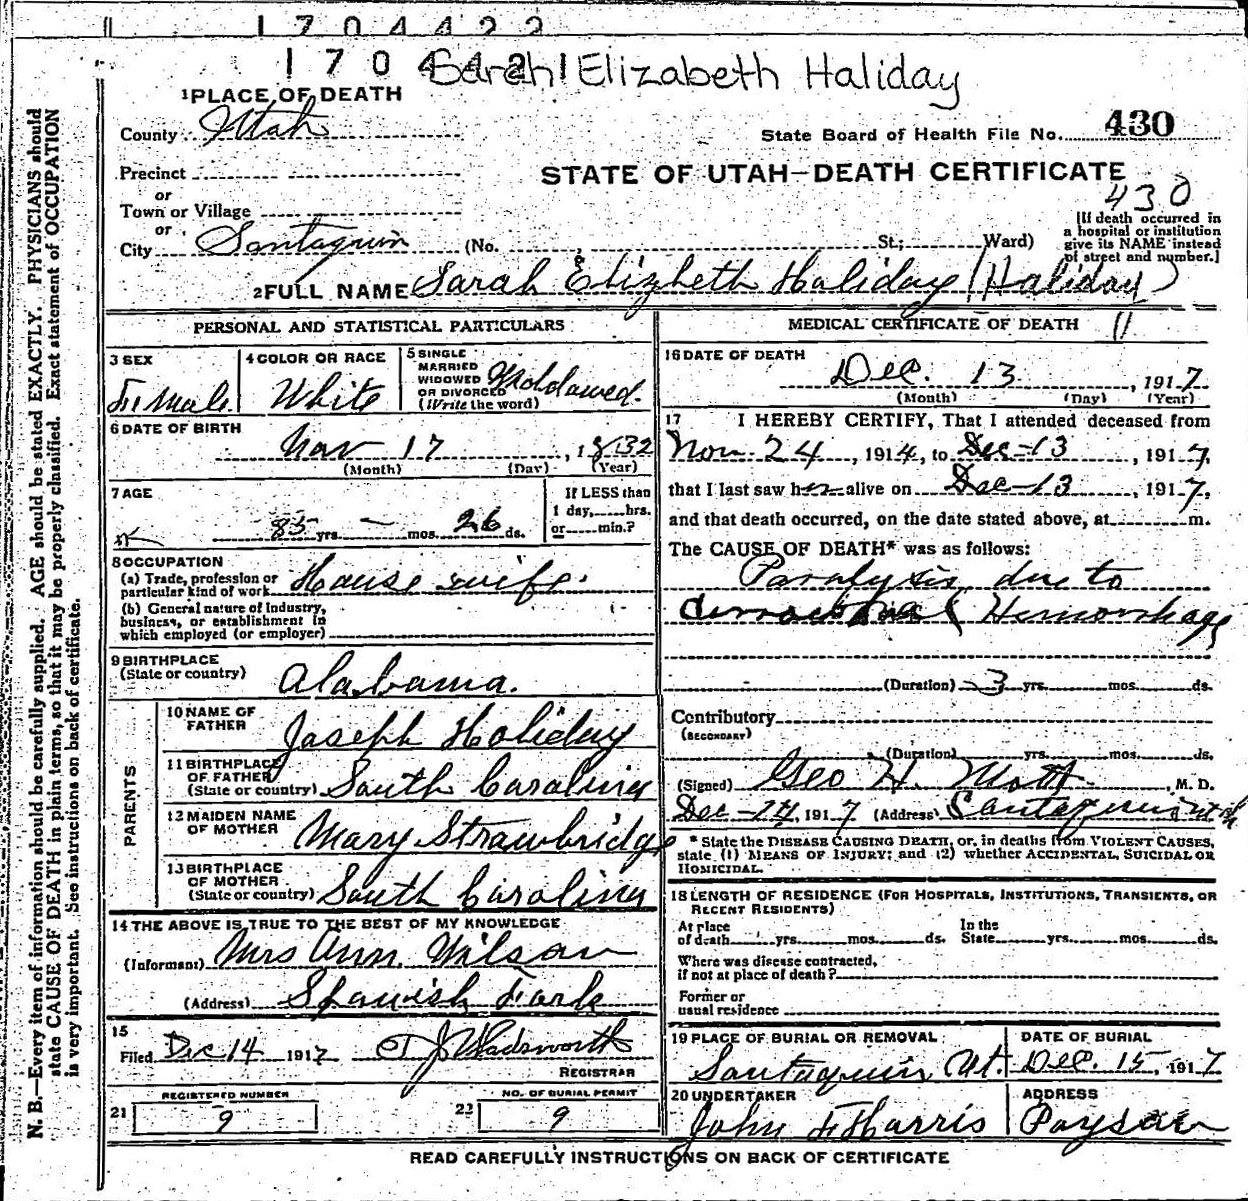 1704422
1704421 Sarah Elizabeth Haliday
1 PLACE OF DEATH
County Utah
State Board of Health File No. 430
Precinct
STATE OF UTAH—DEATH CERTIFICATE
or
430
Town or Village
or
City Santaquin (No. , St; Ward)
[If death occurred in
a hospital or institution
give its NAME instead
of street and number.]
2 FULL NAME Sarah Elizbeth Haliday (Haliday)
PERSONAL AND STATISTICAL PARTICULARS
3 SEX
Female
4 COLOR OR RACE
White
5 SINGLE
MARRIED
WIDOWED
OR DIVORCED
(Write the word)
Widdowed.
6 DATE OF BIRTH
Nov 17, 1832
(Month) (Day) (Year)
7 AGE
85 yrs. — mos. 26 ds.
If LESS than
1 day, hrs.
or min.?
8 OCCUPATION
(a) Trade, profession or
particular kind of work House wife.
(b) General nature of Industry,
business, or establishment in
which employed (or employer)
9 BIRTHPLACE
(State or country) Alabama.
PARENTS
10 NAME OF
FATHER Joseph Holiday
11 BIRTHPLACE
OF FATHER
(State or country) South Carolina
12 MAIDEN NAME
OF MOTHER Mary Strawbridge
13 BIRTHPLACE
OF MOTHER
(State or country) South Carolina
14 THE ABOVE IS TRUE TO THE BEST OF MY KNOWLEDGE
(Informant) Mrs Ann Wilson
(Address) Spanish Fork
15
Filed Dec 14 1917 J Wadsworth
REGISTRAR
21 REGISTERED NUMBER
9
22 NO. OF BURIAL PERMIT
9
MEDICAL CERTIFICATE OF DEATH 11
16 DATE OF DEATH
Dec. 13, 1917
(Month) (Day) (Year)
17 I HEREBY CERTIFY, That I attended deceased from
Nov. 24, 1914, to Dec-13, 1917,
that I last saw her alive on Dec-13, 1917,
and that death occurred, on the date stated above, at m.
The CAUSE OF DEATH* was as follows:
Paralysis due to
Hemorrhage
(Duration) 3 yrs. mos. ds.
Contributory
(SECONDARY)
(Duration) yrs. mos. ds.
(Signed) Geo H. Mott M. D.
Dec-14, 1917 (Address) Santaquin Utah
* State the DISEASE CAUSING DEATH, or, in deaths from VIOLENT CAUSES,
state (1) MEANS OF INJURY; and (2) whether ACCIDENTAL, SUICIDAL OR
HOMICIDAL.
18 LENGTH OF RESIDENCE (FOR HOSPITALS, INSTITUTIONS, TRANSIENTS, OR
RECENT RESIDENTS)
At place
of death yrs. mos. ds.
In the
State yrs. mos. ds.
Where was disease contracted,
if not at place of death?
Former or
usual residence
19 PLACE OF BURIAL OR REMOVAL
Santaquin Ut.
DATE OF BURIAL
Dec. 15, 1917
20 UNDERTAKER
John F Harris
ADDRESS
Payson
READ CAREFULLY INSTRUCTIONS ON BACK OF CERTIFICATE
N. B.—Every item of information should be carefully supplied. AGE should be stated EXACTLY. PHYSICIANS should
state CAUSE OF DEATH in plain terms, so that it may be properly classified. Exact statement of OCCUPATION
is very important. See instructions on back of certificate.